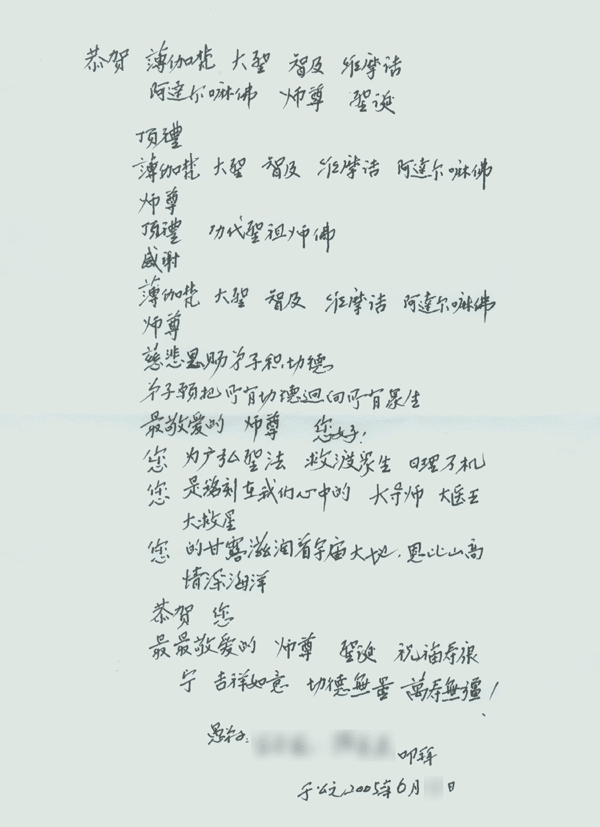 恭贺 薄伽梵 大聖 智及 维摩诘
阿達尔嘛佛 师尊 聖诞
顶禮
薄伽梵 大聖 智及 维摩诘 阿達尔嘛佛
师尊
顶禮 功代聖祖师佛
感谢
薄伽梵 大聖 智及 维摩诘 阿達尔嘛佛
师尊
慈悲恩赐弟子积功德
弟子願把所有功德迴向所有眾生
最敬爱的 师尊 您好!
您 为广弘聖法 救渡眾生 日理万机
您 是铭刻在我们心中的 大导师 大医王
大救星
您 的甘露滋润着宇宙大地,恩比山高
情深海洋
恭贺 您
最最敬爱的 师尊 聖诞 祝福寿
宁 吉祥如意 功德無量 萬寿無疆!
愚弟子: 叩拜
于公元2005年6月 日